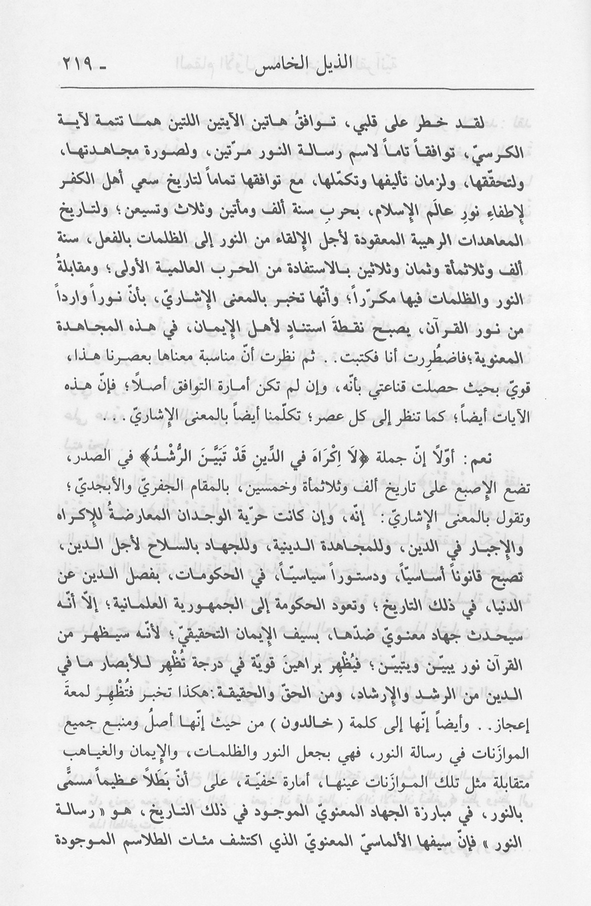 الذيل الخامس ـ ٢١٩
لقـد خطر على قلبي، تـوافقُ هـاتين الآيتين اللتين همـا تتمة لآيـة
الكرسيّ، توافقـاً تامـاً لاسم رسالـة النور مرّتين، ولصورة مجاهـدتهـا،
ولتحقّقها، ولزمان تأليفها وتكمّلها، مع توافقها تماماً لتاريخ سعي أهل الكفر
لإطفاءِ نورِ عالَم الإسلام، بحربِ سنة ألف ومأتين وثلاث وتسيعن؛ ولتاريخ
المعاهدات الرهيبة المعقودة لأجل الإلقاء من النور إلى الظلمات بالفعل، سنة
ألف وثلاثمأة وثمان وثلاثين بـالاستفادة من الحـرب العالميـة الأولى؛ ومقابلةُ
النور والظلمات فيها مكرّراً؛ وأنّها تخبر بالمعنى الإشاريّ، بأنّ نـوراً وارداً
من نور القرآن، يصبح نقطـةَ استنادٍ لأهـل الإيمان، في هـذه المجـاهدة
المعنوية؛فاضطُرِرت أنا فكتبت.. ثم نظرت أنّ مناسبة معناها بعصرنا هذا،
قويّ بحيث حصلت قناعتي بأنّه، وإن لم تكن أمارة التوافق أصلًا؛ فإنّ هذه
الآيات أيضاً؛ كما تنظر إلى كل عصر؛ تكلّمنا أيضاً بالمعنى الإشاريّ...
نعم: أوّلًا إنّ جملة ﴿لَا إِكْرَاهَ في الدِّينِ قَدْ تَبَيَّنَ الرُّشْدُ﴾ في الصدر،
تضع الإصبع على تاريخ ألف وثلاثمأة وخمسين، بالمقام الجفريّ والأبجديّ؛
وتقول بالمعنى الإشاريّ: إنّه، وإن كانت حرّية الوجدان المعارضةُ للإكراه
والإجبار في الدين، وللمجاهدة الدينية، وللجهاد بالسلاح لأجل الدين،
تصبح قانوناً أساسيّاً، ودستوراً سياسيّـاً، في الحكومات، بفصل الدين عن
الدنيا، في ذلك التاريخ؛ وتعود الحكومة إلى الجمهورية العلمانية؛ إلّا أنّه
سيحدث جهاد معنويّ ضدّها، بسيف الإيمان التحقيقيّ؛ لأنّه سيظهر من
القرآن نور يبيّن ويتبيّن؛ فيُظهِر براهين قويّة في درجة تُظهِر للأبصار ما في
الدين من الرشد والإرشاد، ومن الحقّ والحقيقة:هكذا تخبر فتُظْهِر لمعة
إعجاز.. وأيضاً إنّها إلى كلمة (خالدون) من حيث إنّها أصلُ ومنبع جميع
الموازَنات في رسالة النور، فهي بجعل النور والظلمات، والإيمان والغياهب
متقابلة مثل تلك الموازَنات عينها، أمارة خفيّة، على أنّ بَطَلًا عظيماً مسمًّى
بالنور، في مبارزة الجهاد المعنويّ الموجود في ذلك التاريخ، هو «رسالة
النور» فإنّ سيفها الألماسيّ المعنويّ الذي اكتشف مئات الطلاسم الموجودة